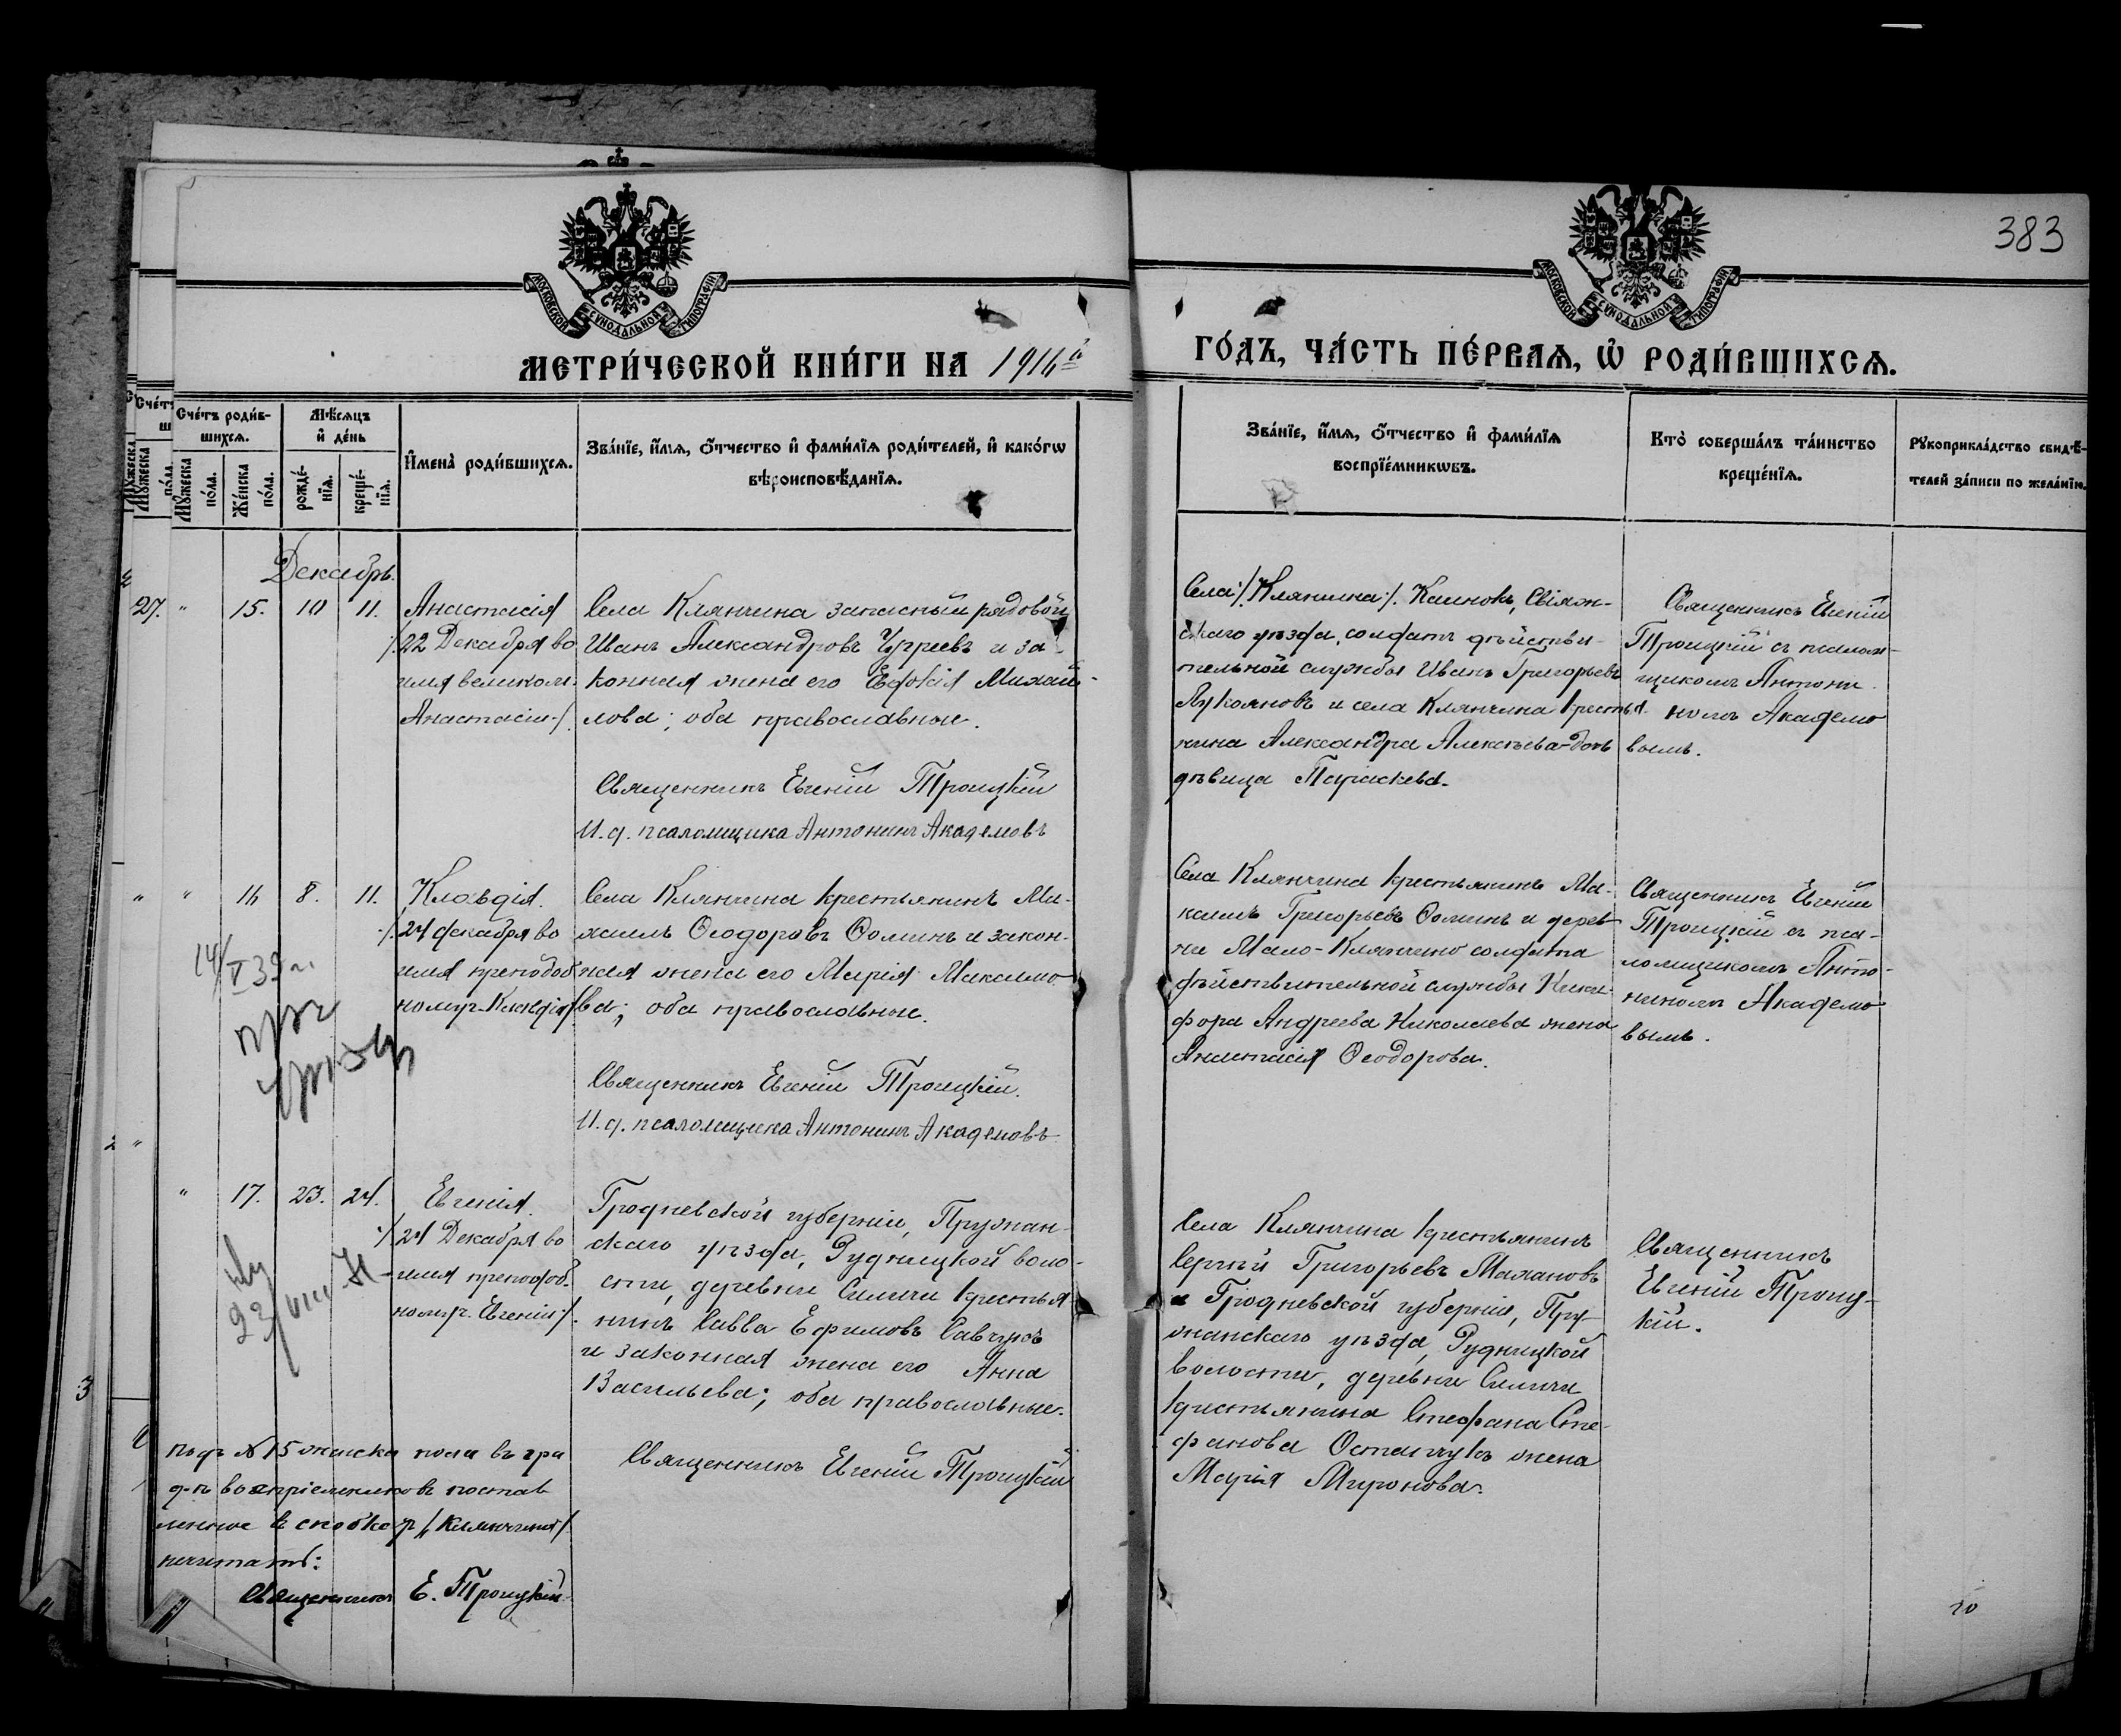 383
МОСКОВСКОЙ СѴНОДАЛЬНОЙ ТИПОГРАФІИ
МОСКОВСКОЙ СѴНОДАЛЬНОЙ ТИПОГРАФІИ
МЕТРИ́ЧЕСКОЙ КНИ́ГИ НА 1916й
ГО́ДЪ, ЧА́СТЬ ПЕ́РВАѦ, Ѡ҆ РОДИ́ВШИХСѦ.
Сче́тъ роди́в-
шихсѧ.
Мѣ́сѧцъ
и҆ де́нь
И҆мена̀ роди́вшихсѧ.
Зва́нїе, и҆́мѧ, ѻ҆́тчество и҆ фами́лїѧ роди́телей, и҆ како́гѡ
вѣроисповѣ́данїѧ.
Мꙋ́жеска
по́ла.
Же́нска
по́ла.
рожде́-
нїѧ.
креще́-
нїѧ.
Зва́нїе, и҆́мѧ, ѻ҆́тчество и҆ фами́лїѧ
воспрїе́мникѡвъ.
Кто̀ соверша́лъ та́инство
креще́нїѧ.
Рꙋкоприкла́дство свидѣ́-
телей за́писи по жела́нїю.
Декабрь.
27. " 15. 10 11.
Анастасія
/22 Декабря во
имя великом.
Анастасіи/.
Села Клянчина запасный рядовой
Иванъ Александровъ Чугреевъ и за-
конная жена его Евдокія Михай-
лова; оба православные.
Священникъ Евгеній Троицкій
И. д. псаломщика Антонинъ Академовъ
Села /.Клянчина/. Каинокъ, Свіяж-
скаго уѣзда, солдатъ дѣйстви-
тельной службы Иванъ Григорьевъ
Лукояновъ и села Клянчина крестья-
нина Александра Алексѣева дочь
дѣвица Параскева.
Священникъ Евгеній
Троицкій съ псалом-
щикомъ Антони-
номъ Академо
вымъ.
" " 16 8. 11.
Клавдія.
/24 декабря во
имя преподоб
номуч. Клавдіи/
Села Клянчина крестьянинъ Ми-
хаилъ Ѳеодоровъ Ѳоминъ и закон-
ная жена его Марія Максимо-
ва; оба православные.
Священникъ Евгеній Троицкій.
И. д. псаломщика Антонинъ Академовъ
Села Клянчина крестьянинъ Ма-
каимъ Григорьевъ Ѳоминъ и дерев-
ни Мало-Клянчино солдата
дѣйствительной службы Ники-
фора Андреева Николаева жена
Анастасія Ѳеодорова.
Священникъ Евгеній
Троицкій съ пса-
ломщикомъ Анто-
ниномъ Академо
вымъ.
14/V 39 г.
" 17. 23. 24.
Евгенія.
/24 Декабря во
имя преподоб.
номуч. Евгеніи/.
Гродневской губерніи, Пружан-
скаго уѣзда, Рудницкой воло-
сти, деревни Силичи крестья-
нинъ Савва Ефимовъ Савчукъ
и законная жена его Анна
Васильева; оба православные.
Священникъ Евгеній Троицкій
Села Клянчина крестьянинъ
Сергѣй Григорьевъ Махановъ
и Гродневской губерніи, Пру-
жанскаго уѣзда, Рудницкой
волости, деревни Силичи
крестьянина Стефана Сте-
фанова Остапчукъ жена
Марія Миронова.
Священникъ
Евгеній Троиц-
кій.
23/VIII
подъ № 15 женска пола въ гра
д-ѣ воспріемниковъ постав
ленное въ скобкѣ /Клянчина/
нечитать:
Священникъ Е. Троицкій.
20